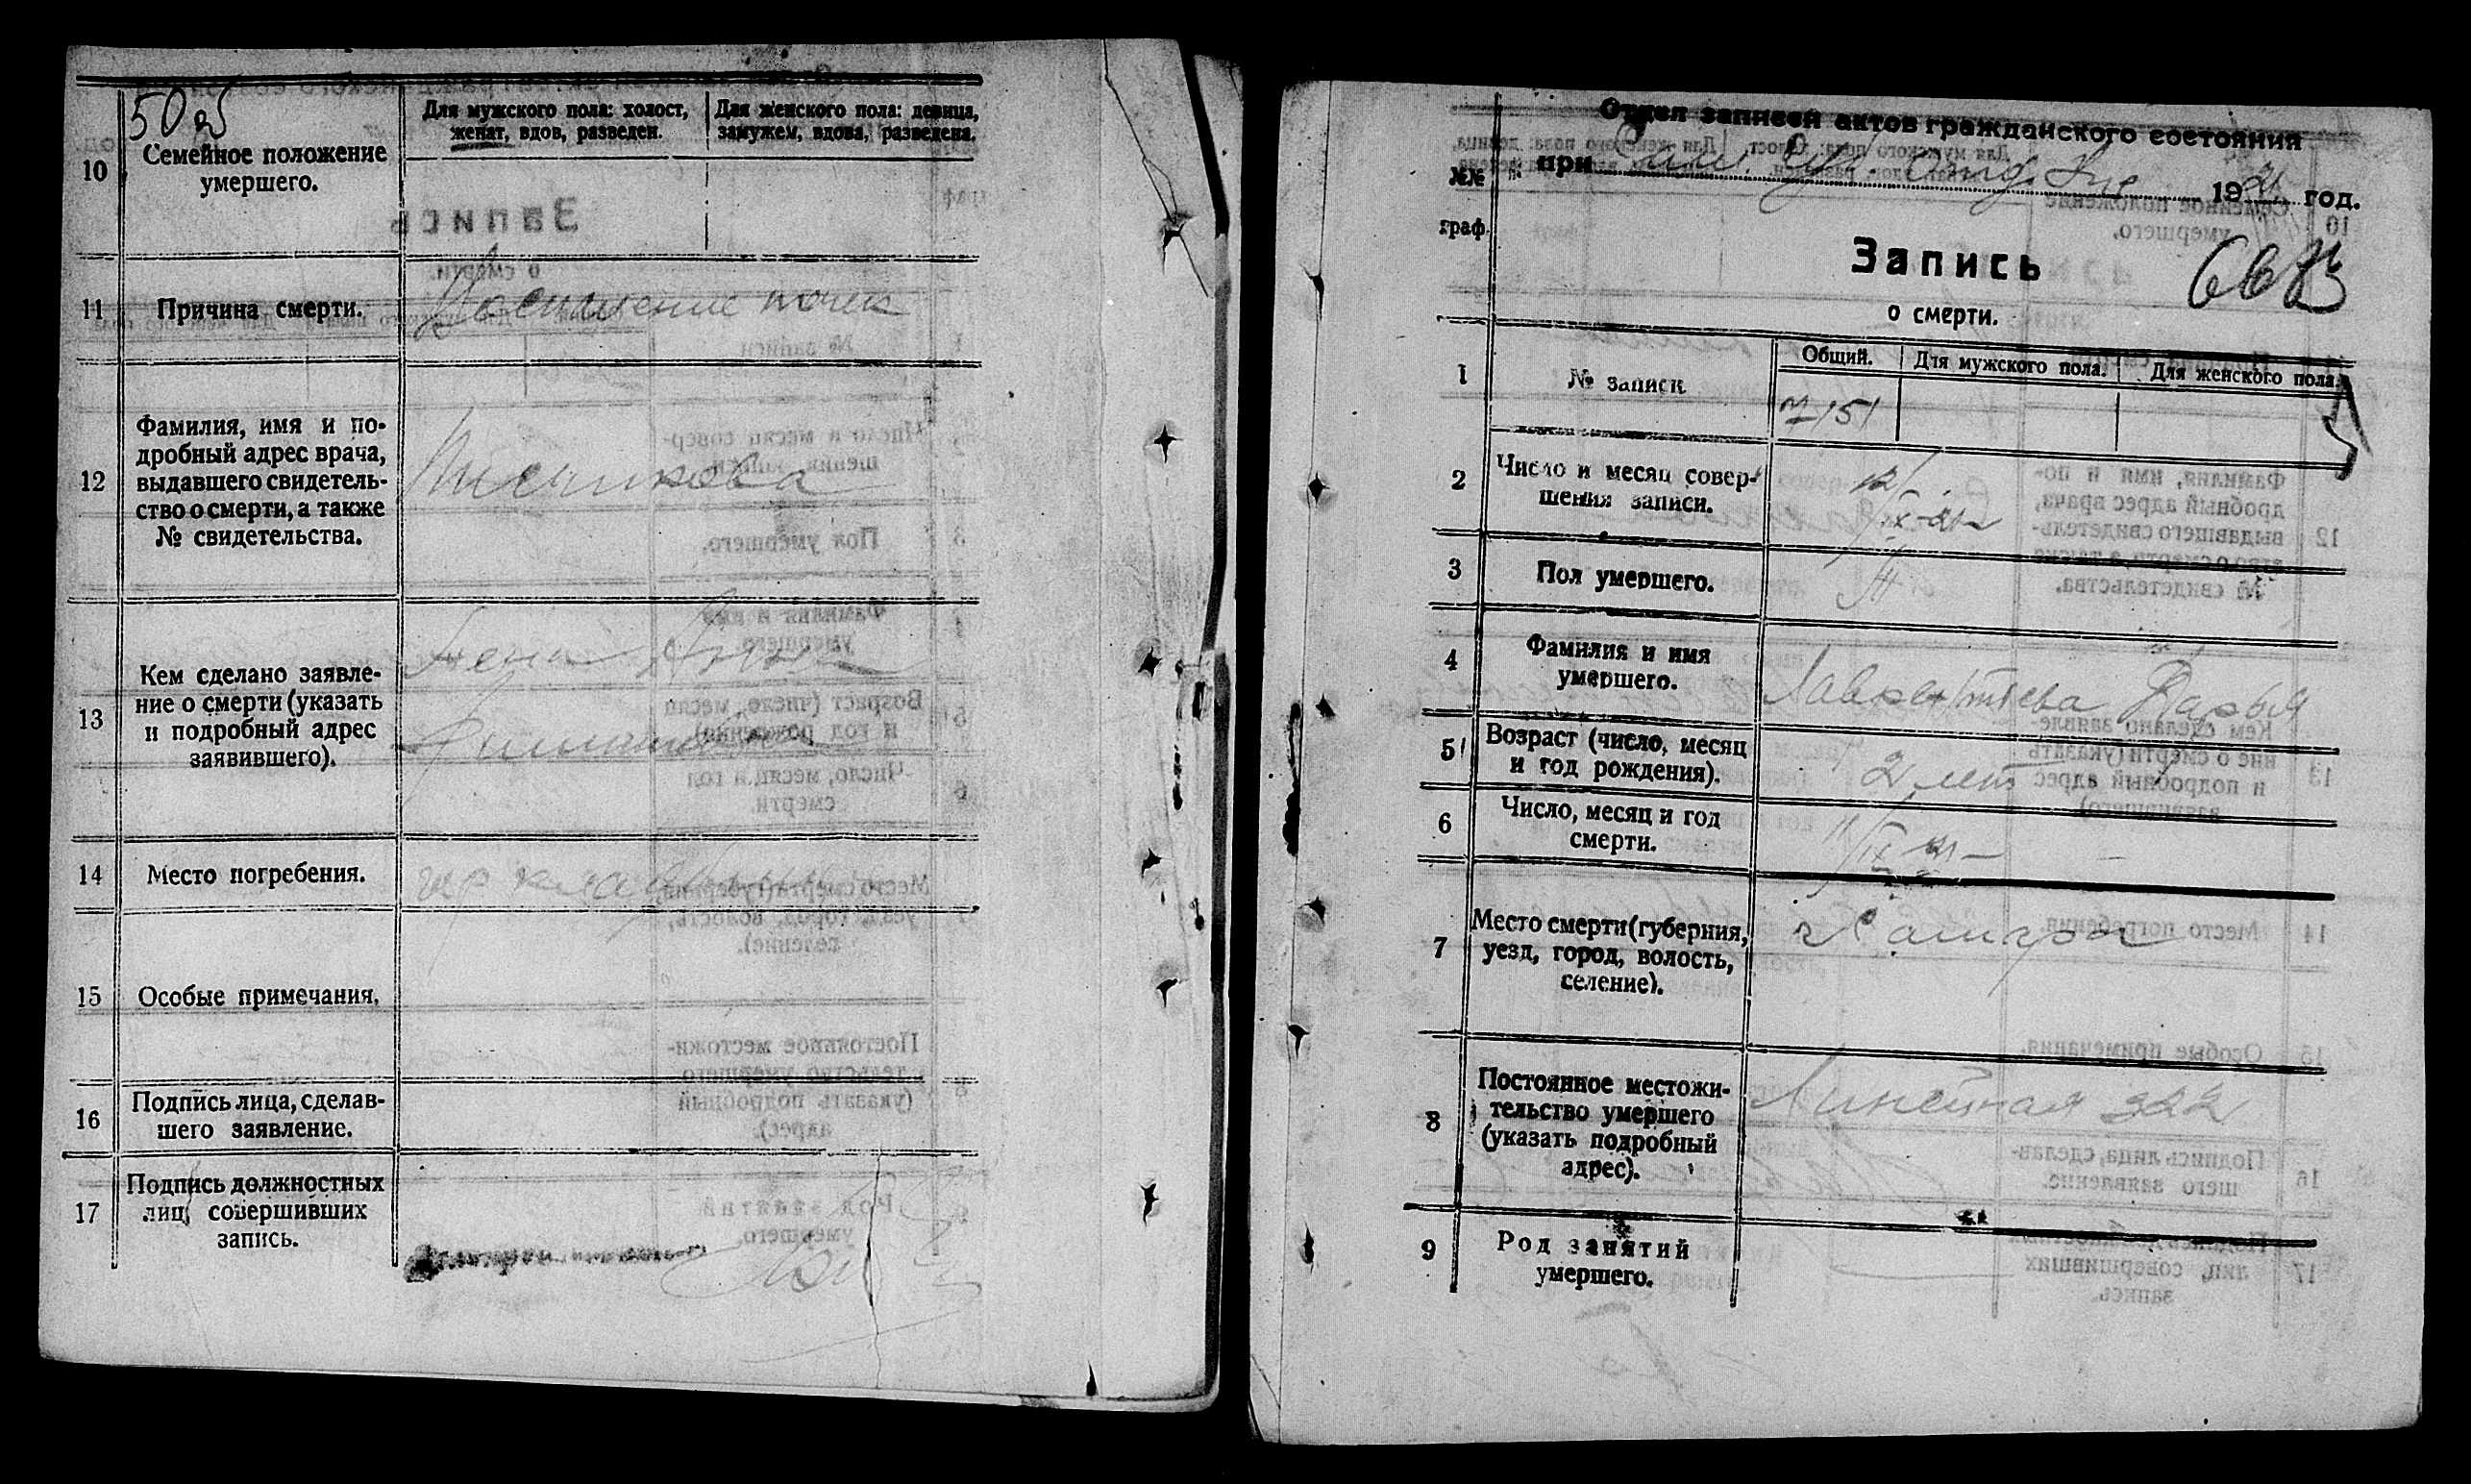 50 об
10
Семейное положение
умершего.
Для мужского пола: холост,
женат, вдов, разведен.
Для женского пола: девица,
замужем, вдова, разведена.
11
Причина смерти.
Воспаление почек
12
Фамилия, имя и по-
дробный адрес врача,
выдавшего свидетель-
ство о смерти, а также
№ свидетельства.
13
Кем сделано заявле-
ние о смерти (указать
и подробный адрес
заявившего).
14
Место погребения.
гор кладбище
15
Особые примечания.
16
Подпись лица, сделав-
шего заявление.
17
Подпись должностных
лиц, совершивших
запись.
Отдел записей актов гражданского состояния
при 1921 год.
№№
граф.
Запись
о смерти.
1
№ записи
Общий.
Для мужского пола.
Для женского пола.
7151
2
Число и месяц совер-
шения записи.
12/IX-21
3
Пол умершего.
Ж
4
Фамилия и имя
умершего.
Лаврентьева Дарья
5
Возраст (число, месяц
и год рождения).
2 лет
6
Число, месяц и год
смерти.
11/IX 21
7
Место смерти (губерния,
уезд, город, волость,
селение).
г Самара
8
Постоянное местожи-
тельство умершего
(указать подробный
адрес).
Линейная 322
9
Род занятий
умершего.